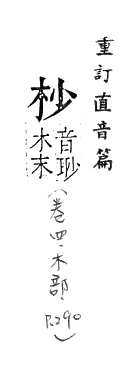 重訂直音篇
杪
音眇
木末
(卷四·木部
P.290)